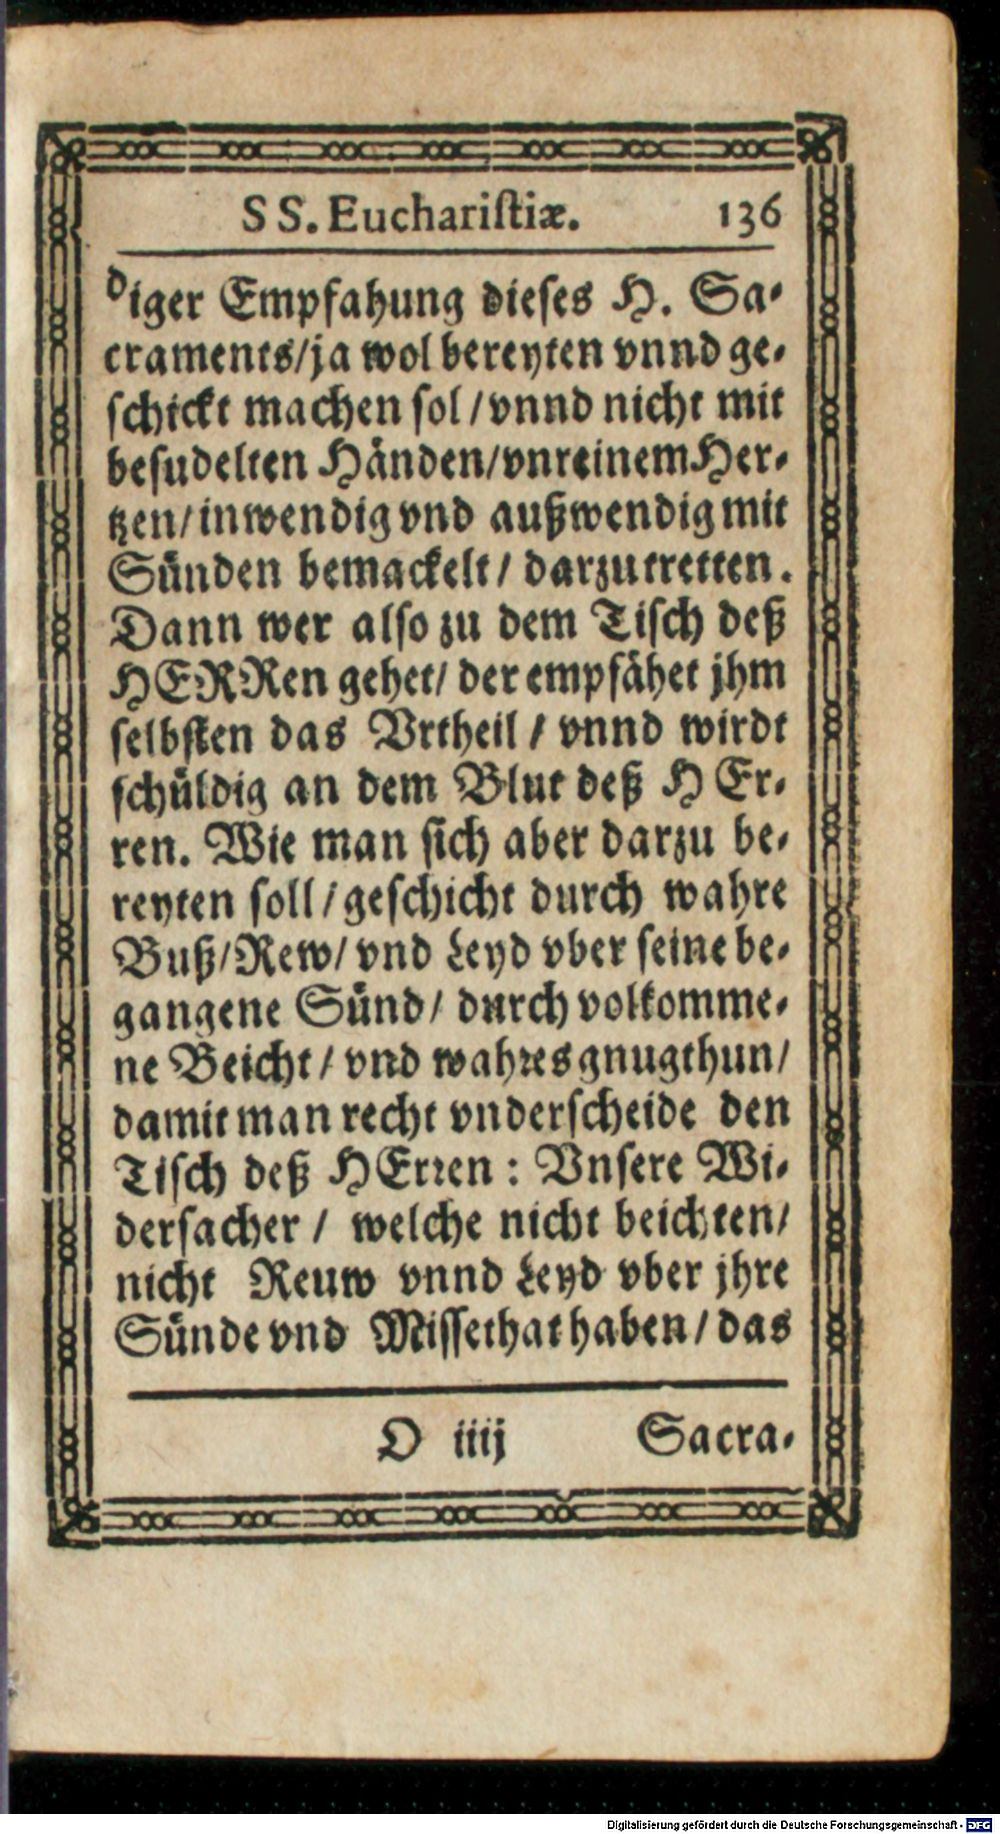 SS. Euchariſtiæ. 136
diger Empfahung dieſes H. Sa-
craments/ja wol bereyten vnnd ge-
ſchickt machen ſol/vnnd nicht mit
beſudelten Händen/vnreinem Her-
tzen/inwendig vnd außwendig mit
Sünden bemackelt/ darzu tretten.
Dann wer alſo zu dem Tiſch deß
HERRen gehet/ der empfähet jhm
ſelbſten das Vrtheil/ vnnd wirdt
ſchüldig an dem Blut deß HEr-
ren. Wie man ſich aber darzu be-
reyten ſoll/geſchicht durch wahre
Buß/Rew/ vnd Leyd vber ſeine be-
gangene Sünd/ durch volkomme-
ne Beicht/ vnd wahres gnugthun/
damit man recht vnderſcheide den
Tiſch deß HErren: Vnſere Wi-
derſacher/ welche nicht beichten/
nicht Reuw vnnd Leyd vber jhre
Sünde vnd Miſſethat haben/das
O iiij Sacra-
Digitalisierung gefördert durch die Deutsche Forschungsgemeinschaft - DFG